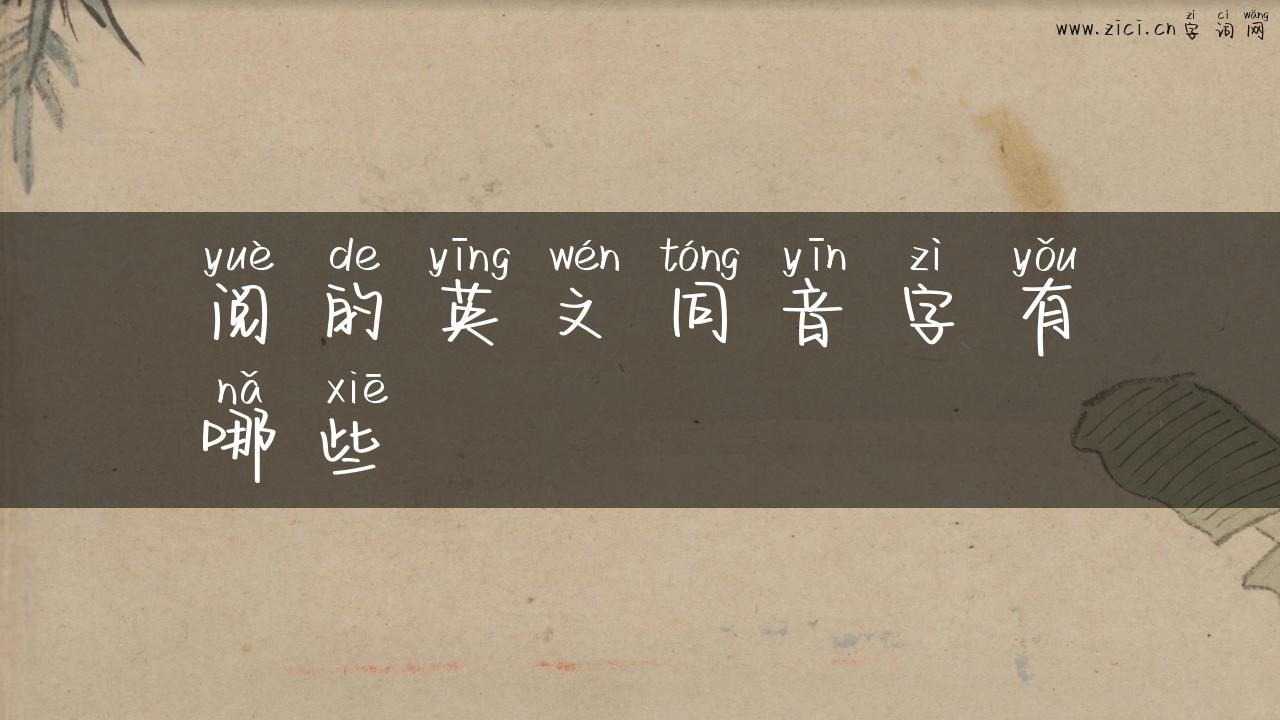 zì cí wǎng
www.zici.cn 字词网
yuè de yīng wén tóng yīn zì yǒu
阅的英文同音字有
nǎ xiē
哪些